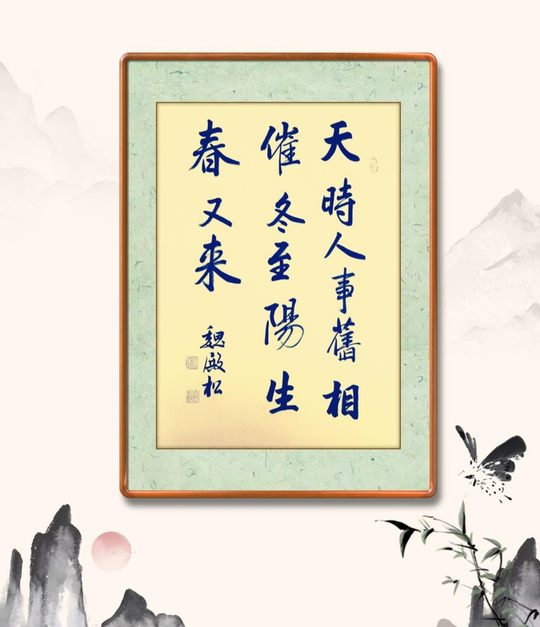 天時人事舊相
催冬至陽生
春又来
魏松